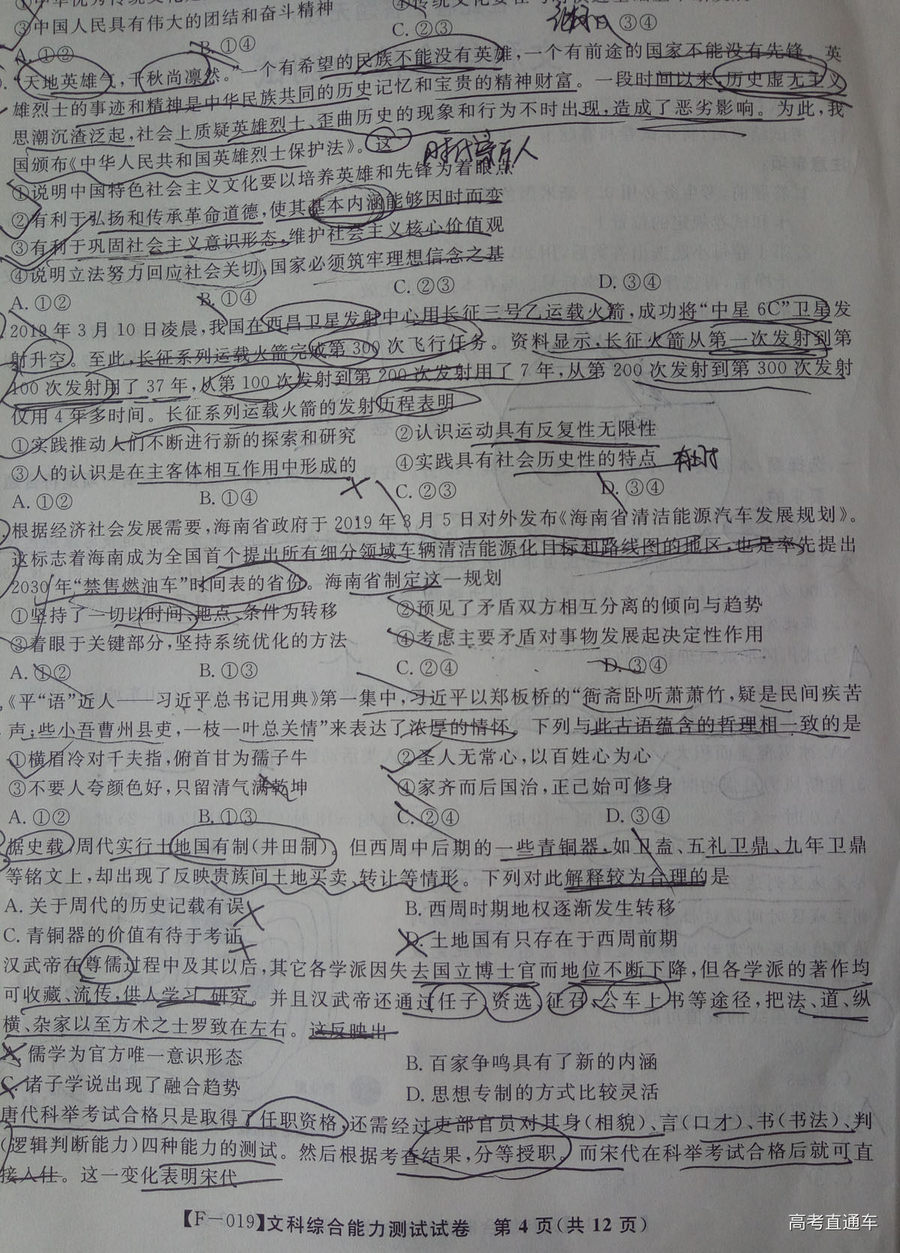 ③中国人民具有伟大的团结和奋斗精神
A. ①② B. ①④ C. ②③ ③④
“天地英雄气,千秋尚凛然。”一个有希望的民族不能没有英雄,一个有前途的国家不能没有先锋。英
雄烈士的事迹和精神是中华民族共同的历史记忆和宝贵的精神财富。一段时间以来,历史虚无主义
思潮沉渣泛起,社会上质疑英雄烈士、歪曲历史的现象和行为不时出现,造成了恶劣影响。为此,我
国颁布《中华人民共和国英雄烈士保护法》。这
①说明中国特色社会主义文化要以培养英雄和先锋为着眼点
②有利于弘扬和传承革命道德,使其基本内涵能够因时而变
③有利于巩固社会主义意识形态,维护社会主义核心价值观
④说明立法努力回应社会关切,国家必须筑牢理想信念之基
A. ①② B. ①④ C. ②③ D. ③④
2019 年 3 月 10 日凌晨,我国在西昌卫星发射中心用长征三号乙运载火箭,成功将“中星 6C”卫星发
射升空。至此,长征系列运载火箭完成第 300 次飞行任务。资料显示,长征火箭从第一次发射到第
100 次发射用了 37 年,从第 100 次发射到第 200 次发射用了 7 年,从第 200 次发射到第 300 次发射
仅用 4 年多时间。长征系列运载火箭的发射历程表明
①实践推动人们不断进行新的探索和研究 ②认识运动具有反复性无限性
③人的认识是在主客体相互作用中形成的 ④实践具有社会历史性的特点
A. ①② B. ①④ C. ②③ D. ③④
根据经济社会发展需要,海南省政府于 2019 年 3 月 5 日对外发布《海南省清洁能源汽车发展规划》。
这标志着海南成为全国首个提出所有细分领域车辆清洁能源化目标和路线图的地区,也是率先提出
2030 年“禁售燃油车”时间表的省份。海南省制定这一规划
①坚持了一切以时间、地点、条件为转移 ②预见了矛盾双方相互分离的倾向与趋势
③着眼于关键部分,坚持系统优化的方法 ④考虑主要矛盾对事物发展起决定性作用
A. ①② B. ①③ C. ②④ D. ③④
《平“语”近人——习近平总书记用典》第一集中,习近平以郑板桥的“衙斋卧听萧萧竹,疑是民间疾苦
声;些小吾曹州县吏,一枝一叶总关情”来表达了浓厚的情怀。下列与此古语蕴含的哲理相一致的是
①横眉冷对千夫指,俯首甘为孺子牛 ②圣人无常心,以百姓心为心
③不要人夸颜色好,只留清气满乾坤 ④家齐而后国治,正己始可修身
A. ①② B. ①③ C. ②④ D. ③④
据史载,周代实行土地国有制(井田制)。但西周中后期的一些青铜器,如卫盉、五礼卫鼎、九年卫鼎
等铭文上,却出现了反映贵族间土地买卖、转让等情形。下列对此解释较为合理的是
A. 关于周代的历史记载有误 B. 西周时期地权逐渐发生转移
C. 青铜器的价值有待于考证 D. 土地国有只存在于西周前期
汉武帝在尊儒过程中及其以后,其它各学派因失去国立博士官而地位不断下降,但各学派的著作均
可收藏、流传,供人学习、研究。并且汉武帝还通过任子、资选、征召、公车上书等途径,把法、道、纵
横、杂家以至方术之士罗致在左右。这反映出
A. 儒学为官方唯一意识形态 B. 百家争鸣具有了新的内涵
C. 诸子学说出现了融合趋势 D. 思想专制的方式比较灵活
唐代科举考试合格只是取得了任职资格,还需经过吏部官员对其身(相貌)、言(口才)、书(书法)、判
(逻辑判断能力)四种能力的测试。然后根据考查结果,分等授职。而宋代在科举考试合格后就可直
接入仕。这一变化表明宋代
【F-019】文科综合能力测试试卷 第 4 页(共 12 页)
高考直通车